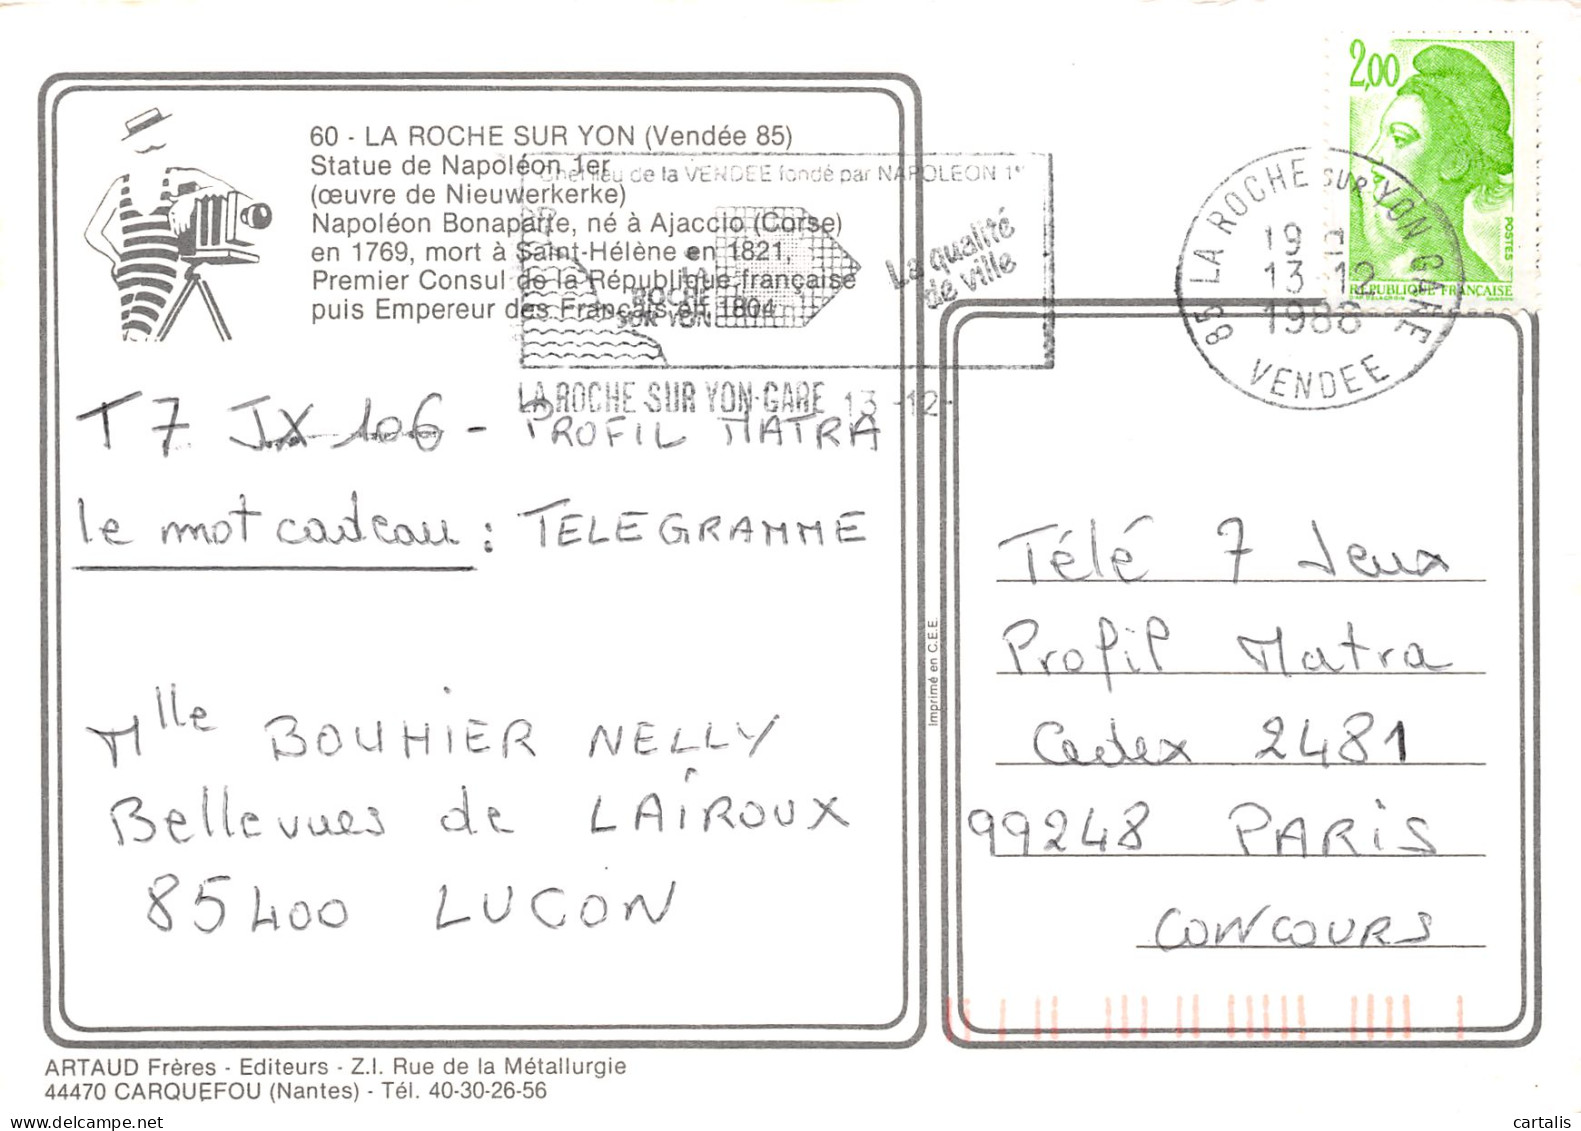 60 - LA ROCHE SUR YON (Vendée 85)
Statue de Napoléon 1er
(œuvre de Nieuwerkerke)
Napoléon Bonaparte, né à Ajaccio (Corse)
en 1769, mort à Saint-Hélène en 1821,
Premier Consul de la République française
puis Empereur des Français en 1804
Chef lieu de la VENDEE fondé par NAPOLEON 1er
LA
ROCHE
SUR YON
La qualité
de ville
LA ROCHE SUR YON GARE 13 -12-
2,00
POSTES
REPUBLIQUE FRANÇAISE
85 LA ROCHE SUR YON GARE
19 H
13-12
1988
VENDEE
T 7 JX 106 - PROFIL MATRA
le mot cadeau : TELEGRAMME
Mlle BOUHIER NELLY
Bellevues de LAIROUX
85400 LUCON
Imprimé en C.E.E.
Télé 7 Jeux
Profil Matra
Cedex 2481
99248 PARIS
CONCOURS
ARTAUD Frères - Editeurs - Z.I. Rue de la Métallurgie
44470 CARQUEFOU (Nantes) - Tél. 40-30-26-56
cartalis
delcampe.net